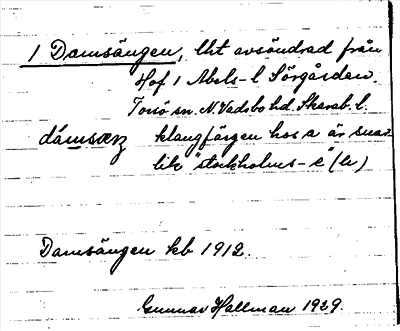 1 Damsängen, lht avsöndrad från
Hof 1 Abels-l Sörgården.
Torsö sn. N. Vadsbo hd. Skarab. l.
dámsæŋ klangfärgen hos a är snar
lik "stockholms-e" (e)
Damsängen kb 1912.
Gunnar Hallman 1929.